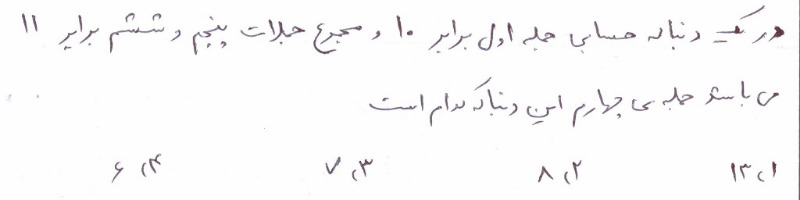 در یک دنباله حسابی جمله اول برابر ۱۰ و مجموع جملات پنجم و ششم برابر ۱۱
می باشد جمله ی چهارم این دنباله کدام است
۱) ۱۳ ۲) ۸ ۳) ۷ ۴) ۶